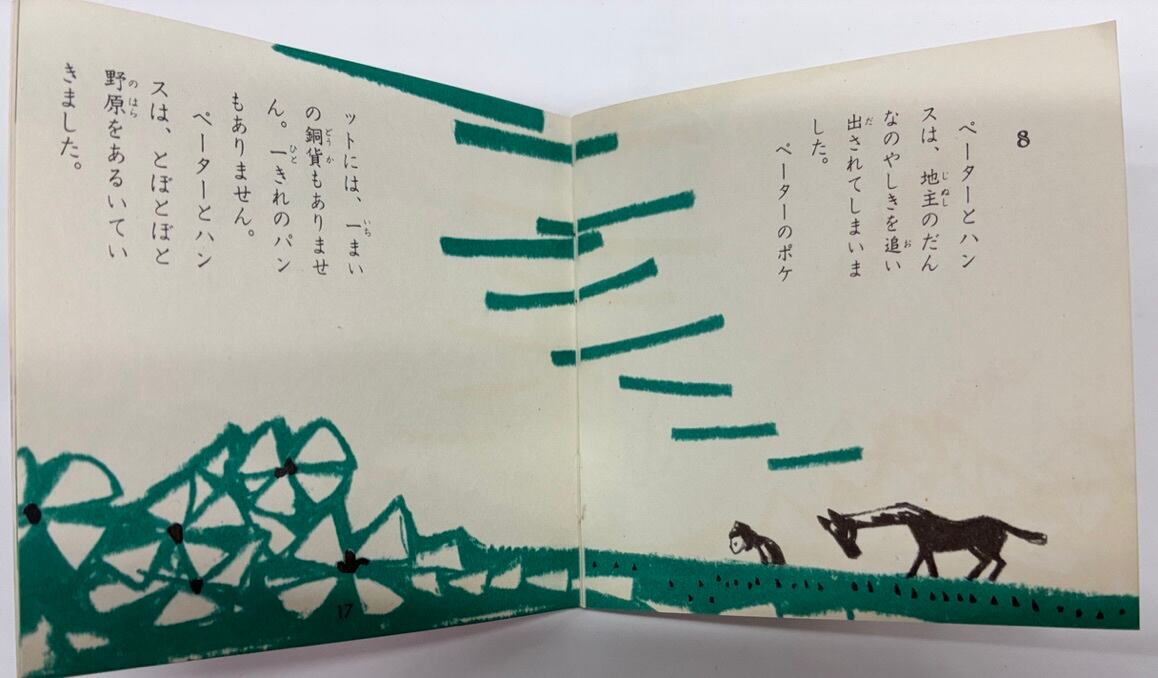 8
ペーターとハン
スは、地主のだん
なのやしきを追い
出されてしまいま
した。
ペーターのポケ
ットには、一まい
の銅貨もありませ
ん。一きれのパン
もありません。
ペーターとハン
スは、とぼとぼと
野原をあるいてい
きました。
17